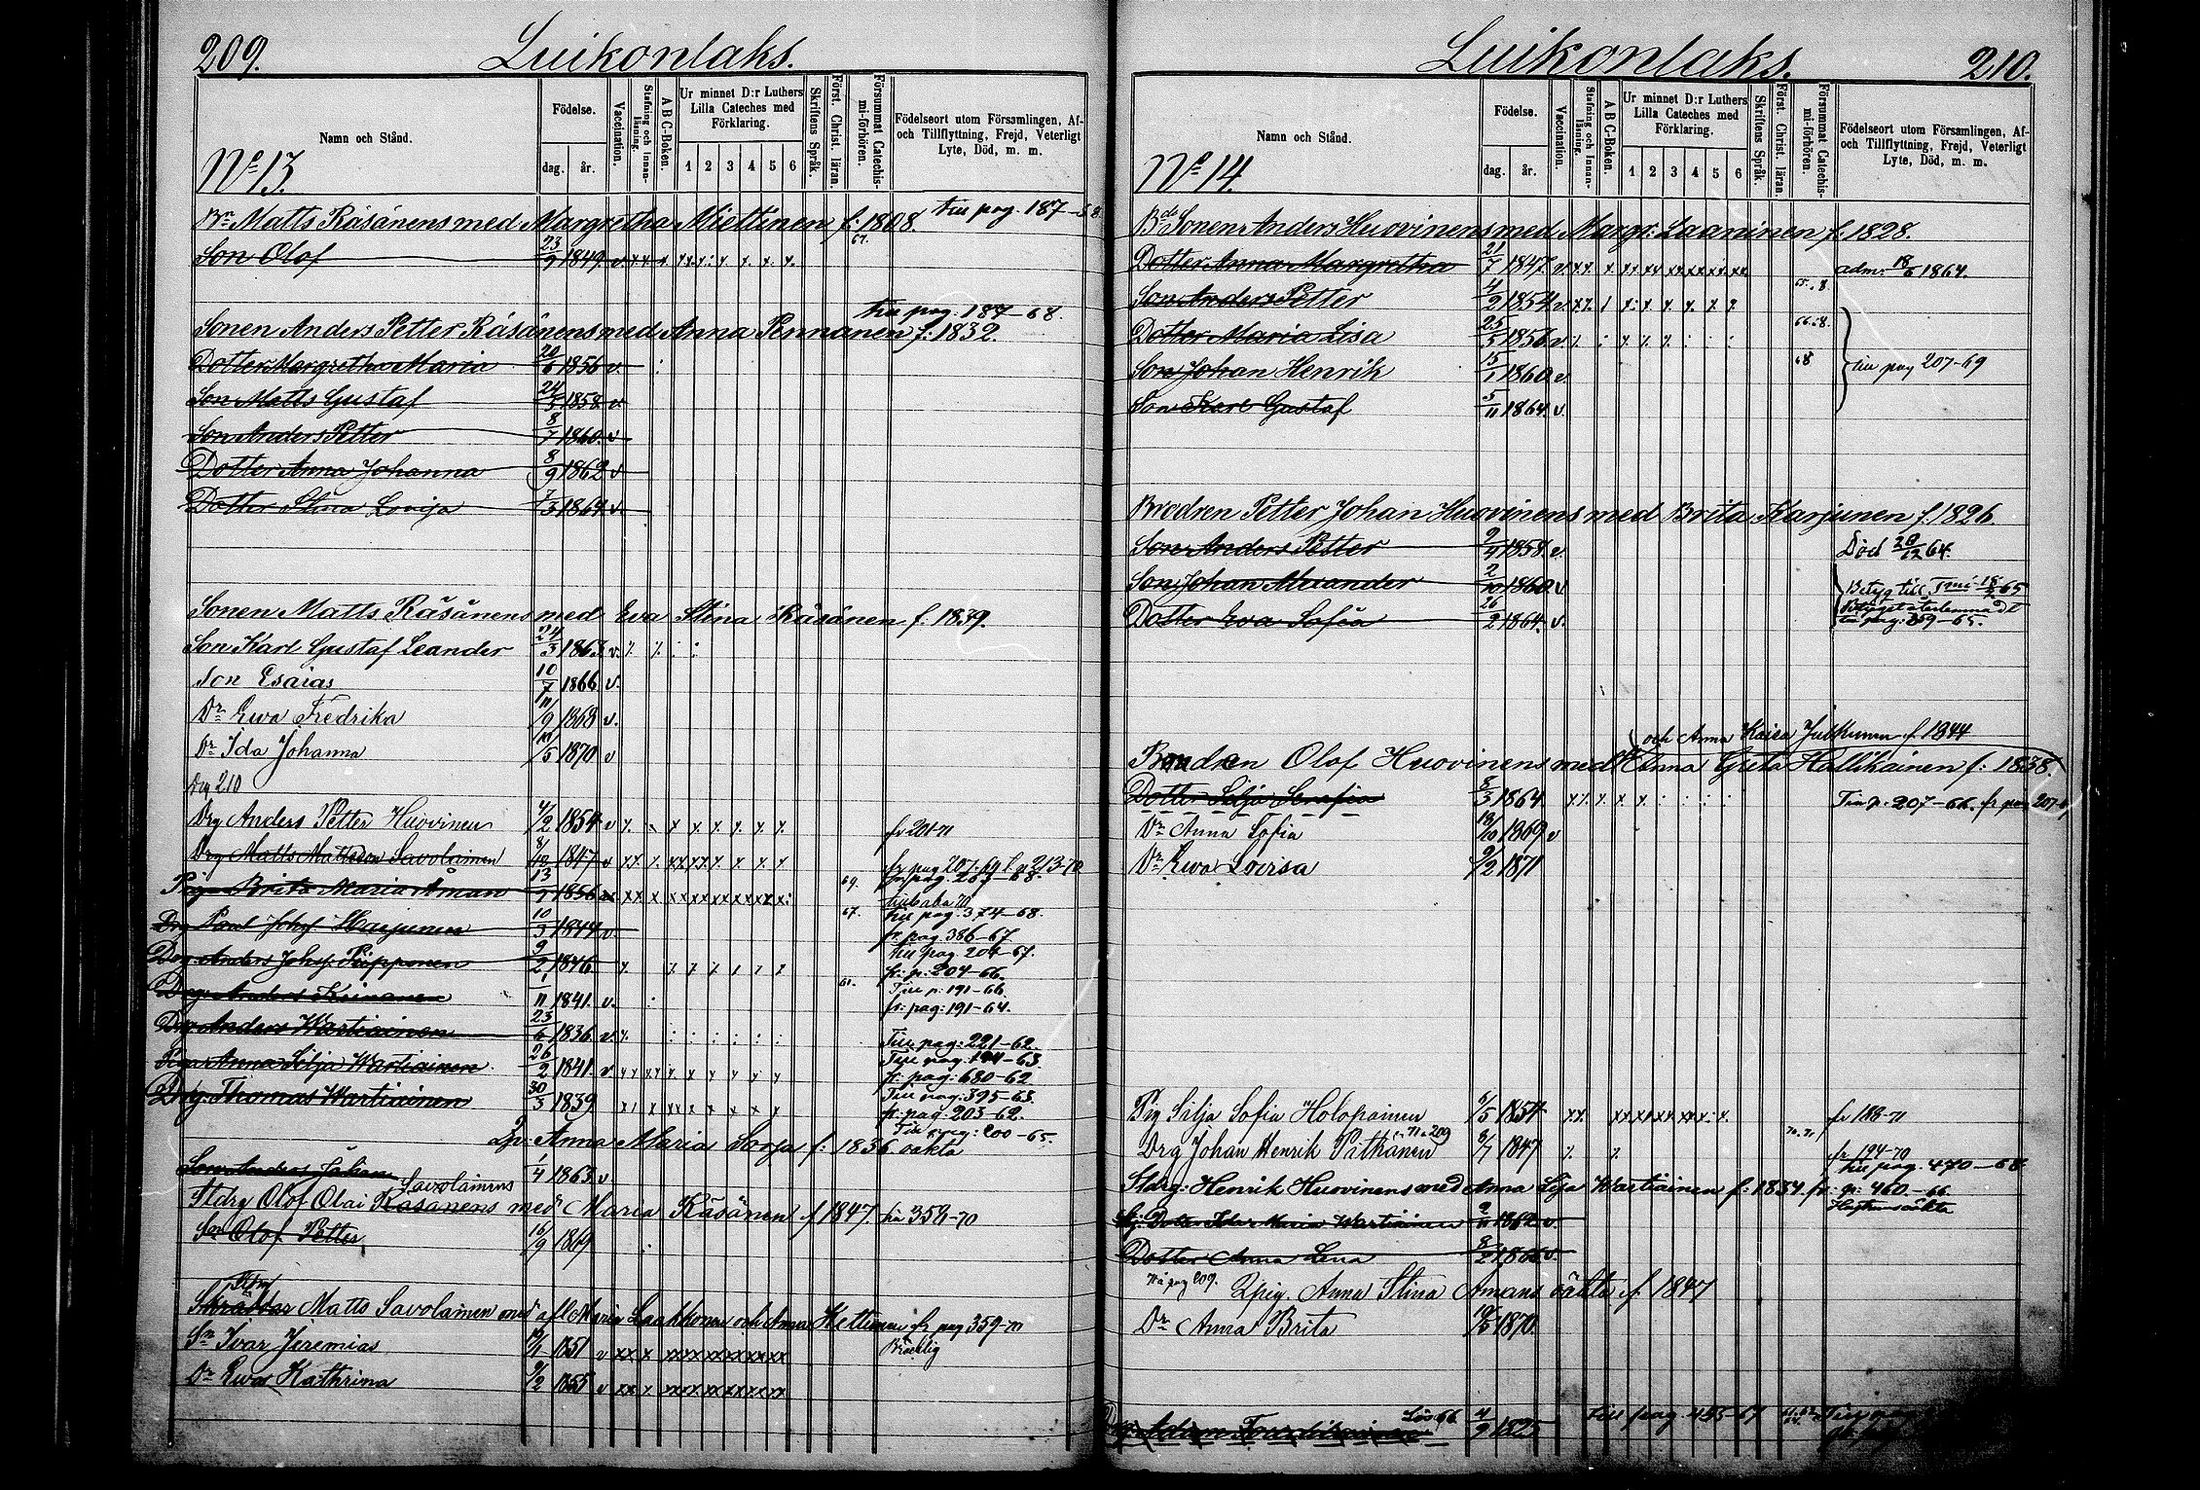 209. Luikonlaks.
Namn och Stånd.
Födelse.
dag. år.
Vaccination.
Stafning och Innan-läsning.
A B C-Boken.
Ur minnet D:r Luthers Lilla Cateches med Förklaring.
1 2 3 4 5 6
Skriftens Språk.
Först. Christ. läran.
Försummat Catechis-mi-förhören.
Födelseort utom Församlingen, Af-
och Tillflyttning, Frejd, Veterligt
Lyte, Död, m. m.
No 13.
Br Matts Räsänens med Margretha Miettinen f: 1808. till pag. 187-68.
Son Olof 23/9 1849. v 67.
till pag. 187-68.
Sonen Anders Petter Räsänens med Anna Pennanen f: 1832.
Dotter Margretha Maria 20/6 1856 v.
Son Matts Gustaf 24/3 1858 v.
Son Anders Petter 8/7 1860. v
Dotter Anna Johanna 8/9 1862 v.
Dotter Stina Lovisa 7/3 1864 v.
Sonen Matts Räsänens med Eva Stina Räsänen f: 1839.
Son Karl Gustaf Leander 24/3 1863 v.
Son Esaias 10/7 1866 v.
Dr Ewa Fredrika 11/9 1868 v.
Dr Ida Johanna 11/5 1870 v
Drg 210
Drg Anders Petter Huovinen 4/2 1854 v fr 201-71
Drg Matts Mattsson Savolainen 1847 v fr pag 207-69 t. p 213-70
Pig. Brita Maria Åman 13/9 1856 69.
Drg Paul Johs Harjunen 10/3 1844 v 67. till pag. 374-68.
fr. pag. 386-67
Drg. Anders Johs: Piipponen 9/2 1846 till pag. 204-67.
fr: p: 204-66.
Drg. Anders Keinänen 1/11 1841. v. 61. Till p: 191-66.
fr: pag: 191-64.
Drg Anders Wartiainen 23/6 1836 v. Till pag: 221-62.
Pigan Anna Silja Wartiainen 26/2 1841. v Till pag. 194-63.
fr. pag: 680-62
Drg. Thomas Wartiainen 30/3 1839 Till pag: 395-63.
fr: pag. 203-62.
Till pag: 200-65.
Anna Maria Sorsa f: 1836 oäkta
Son Anders Johan 1/4 1863 v
Savolainens
Stdrg Olof Olai Räsänens med Maria Räsänen f 1847. till 358-70
Sn Olof Petter 16/9 1869
Skräddar Matts Savolainen med afl Maria Laakkonen och Anna Kettunen fr pag 359-71
Sn Ivar Jeremias 1851 v Bräcklig
Dr Ewa Kathrina 9/2 1855 v
Luikonlaks. 210.
Namn och Stånd.
Födelse.
dag. år.
Vaccination.
Stafning och Innan-läsning.
A B C-Boken.
Ur minnet D:r Luthers Lilla Cateches med Förklaring.
1 2 3 4 5 6
Skriftens Språk.
Först. Christ. läran.
Försummat Catechis-mi-förhören.
Födelseort utom Församlingen, Af-
och Tillflyttning, Frejd, Veterligt
Lyte, Död, m. m.
No 14.
Bde Sonen Anders Huovinens med Margr: Laaninen f. 1828.
Dotter Anna Margretha 21/7 1847. v. adm: 1864.
Son Anders Petter 4/2 1854 v.
Dotter Maria Lisa 25/5 1856 v. 66.68.
Son Johan Henrik 15/1 1860 v. 68 till pag 207-69
Son Karl Gustaf 5/11 1864. v.
Brodren Petter Johan Huovinens med Brita Karjunen f. 1826.
Son Anders Petter 9/4 1858 v. Död 20/12 64.
Son Johan Alexander 2/10 1860 v. Betyg till
Dotter Eva Sofia 26/2 1864. v. Betyget återlemnadt
till pag: 359-65.
och Anna Kaisa Julkunen f 1844
Brodren Olof Huovinens med Anna Greta Hallikainen f: 1838.
Dotter Silja Serafia 8/3 1864. Till p. 207-66. fr pag 207
Dr Anna Sofia 18/10 1869 v
Dr Ewa Lovisa 9/2 1871
Pig Silja Sofia Holopainen 6/5 1854 fr 188-71
71 a 209
Drg Johan Henrik Pitkänen 8/7 1847 70. 71. fr 194-70
till pag. 470-68.
Stdrg: Henrik Huovinens med Anna Lisa Wartiainen f: 1834. fr: p: 460.-66.
Dotter Ida Maria Wartiainen 9/11 1862 v.
Dotter Anna Lena 8/2 1866 v.
på pag 209. Anna Stina Åmans oäkta f 1847
Dr Anna Brita 1870.
Lös 66
4/9 1825 Till pag 455-67